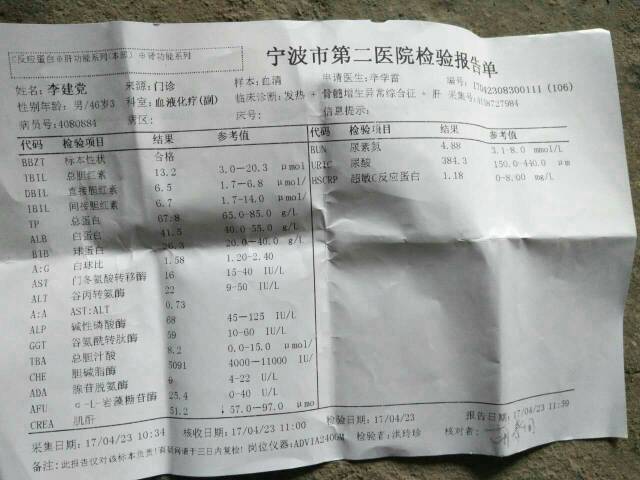 C反应蛋白⊕肝功能系列(本部) ⊕肾功能系列
宁波市第二医院检验报告单
姓名:李建党 来源:门诊 样本:血清 申请医生:辛学雷 编号:17042308300111 (106)
性别年龄:男/46岁3 科室:血液化疗(副) 临床诊断:发热 + 骨髓增生异常综合征 + 肝 采集号:
病员号:4080884 病区: 床号: 信息提示:
代码 检验项目 结果 参考值 代码 检验项目 结果 参考值
BBZT 标本性状 合格 BUN 尿素氮 4.88 3.1-8.0 mmol/L
TBIL 总胆红素 13.2 3.0-20.3 μmol URIC 尿酸 384.3 150.0-440.0 μm
DBIL 直接胆红素 6.5 1.7-6.8 μmol/ HSCRP 超敏C反应蛋白 1.18 0-8.00 mg/L
IBIL 间接胆红素 6.7 1.7-14.0 μmol/
TP 总蛋白 67.8 65.0-85.0 g/L
ALB 白蛋白 41.5 40.0-55.0 g/L
B1B 球蛋白 26.3 20.0-40.0 g/L
A:G 白球比 1.58 1.20-2.40
AST 门冬氨酸转移酶 16 15-40 IU/L
ALT 谷丙转氨酶 22 9-50 IU/L
A:A AST:ALT 0.73
ALP 碱性磷酸酶 68 45-125 IU/L
GGT 谷氨酰转肽酶 59 10-60 IU/L
TBA 总胆汁酸 8.2 0.0-15.0 μmol/
CHE 胆碱脂酶 5091 4000-11000 IU/
ADA 腺苷脱氨酶 4-22 U/L
AFU α-L-岩藻糖苷酶 25.4 0-40 U/L
CREA 肌酐 51.2 ↓57.0-97.0 μmo
采集日期:17/04/23 10:34 核收日期:17/04/23 11:00 检验日期:17/04/23 报告日期:17/04/23 11:59
备注:此报告仅对该标本负责!有疑问请于三日内复检! 岗位仪器:ADVIA2400M 检验者:洪玲珍 核对者: